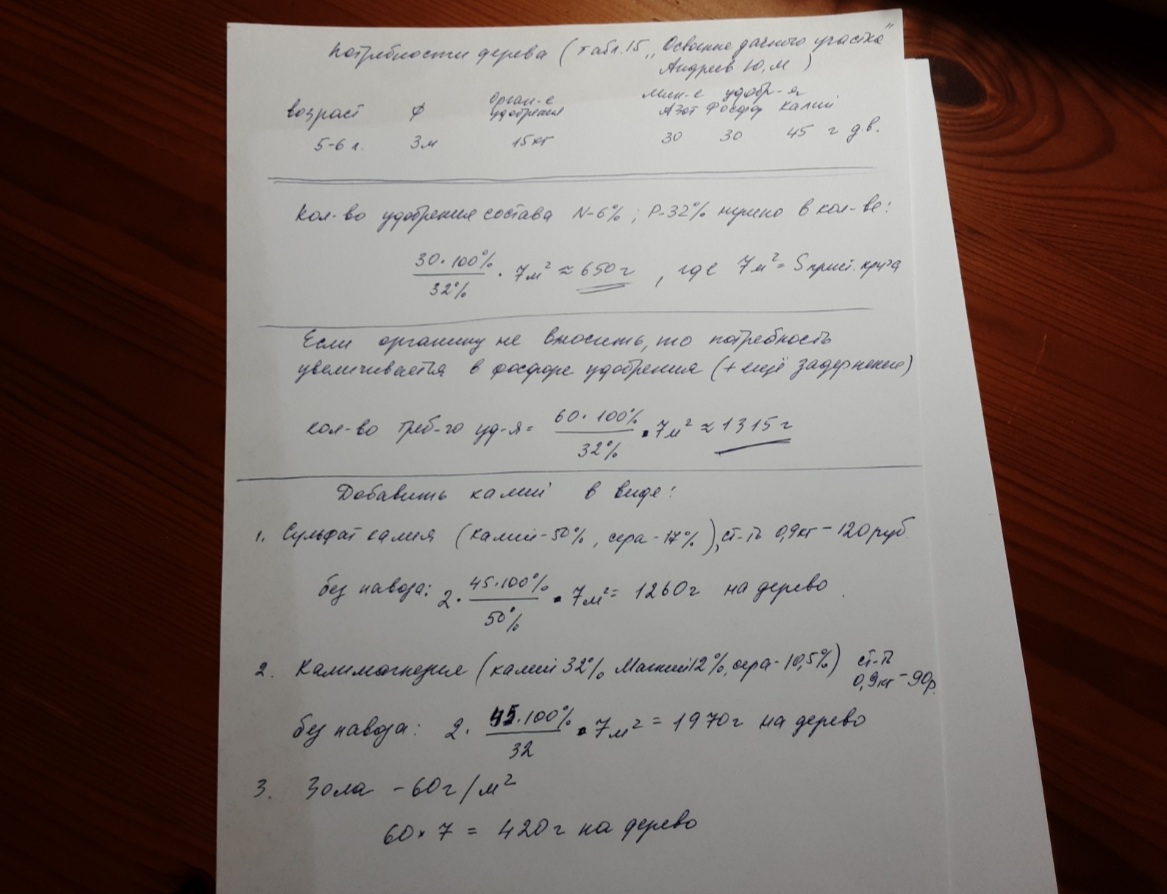 Потребности дерева (табл.15 „Освоение дачного участка"
Андреев Ю.М)
возраст ф орган-е удобрения мин-е удобр-я
Азот Фосфор Калий
5-6 л. 3м 15кг 30 30 45 г д.в.
Кол-во удобрения состава N-6%; P-32% нужно в кол-ве:
30·100%
32%
· 7м² ≈ 650г , где 7м² = S прист. круга
Если органику не вносить, то потребность
увеличивается в фосфоре удобрения (+ ещё задернение)
кол-во треб-го уд-я = 60·100%
32%
· 7м² ≈ 1315г
Добавить калий в виде:
1. Сульфат калия (калий-50%, сера-17%), ст-ть 0,9кг-120руб.
без навоза: 2· 45·100%
50%
· 7м² = 1260г на дерево.
2. Калимагнезия (калий 32% Магний 12%, сера-10,5%) ст-ть
0,9кг-90р.
без навоза: 2· 45·100%
32
· 7м² = 1970г на дерево
3. Зола -60г/м²
60×7 = 420г на дерево